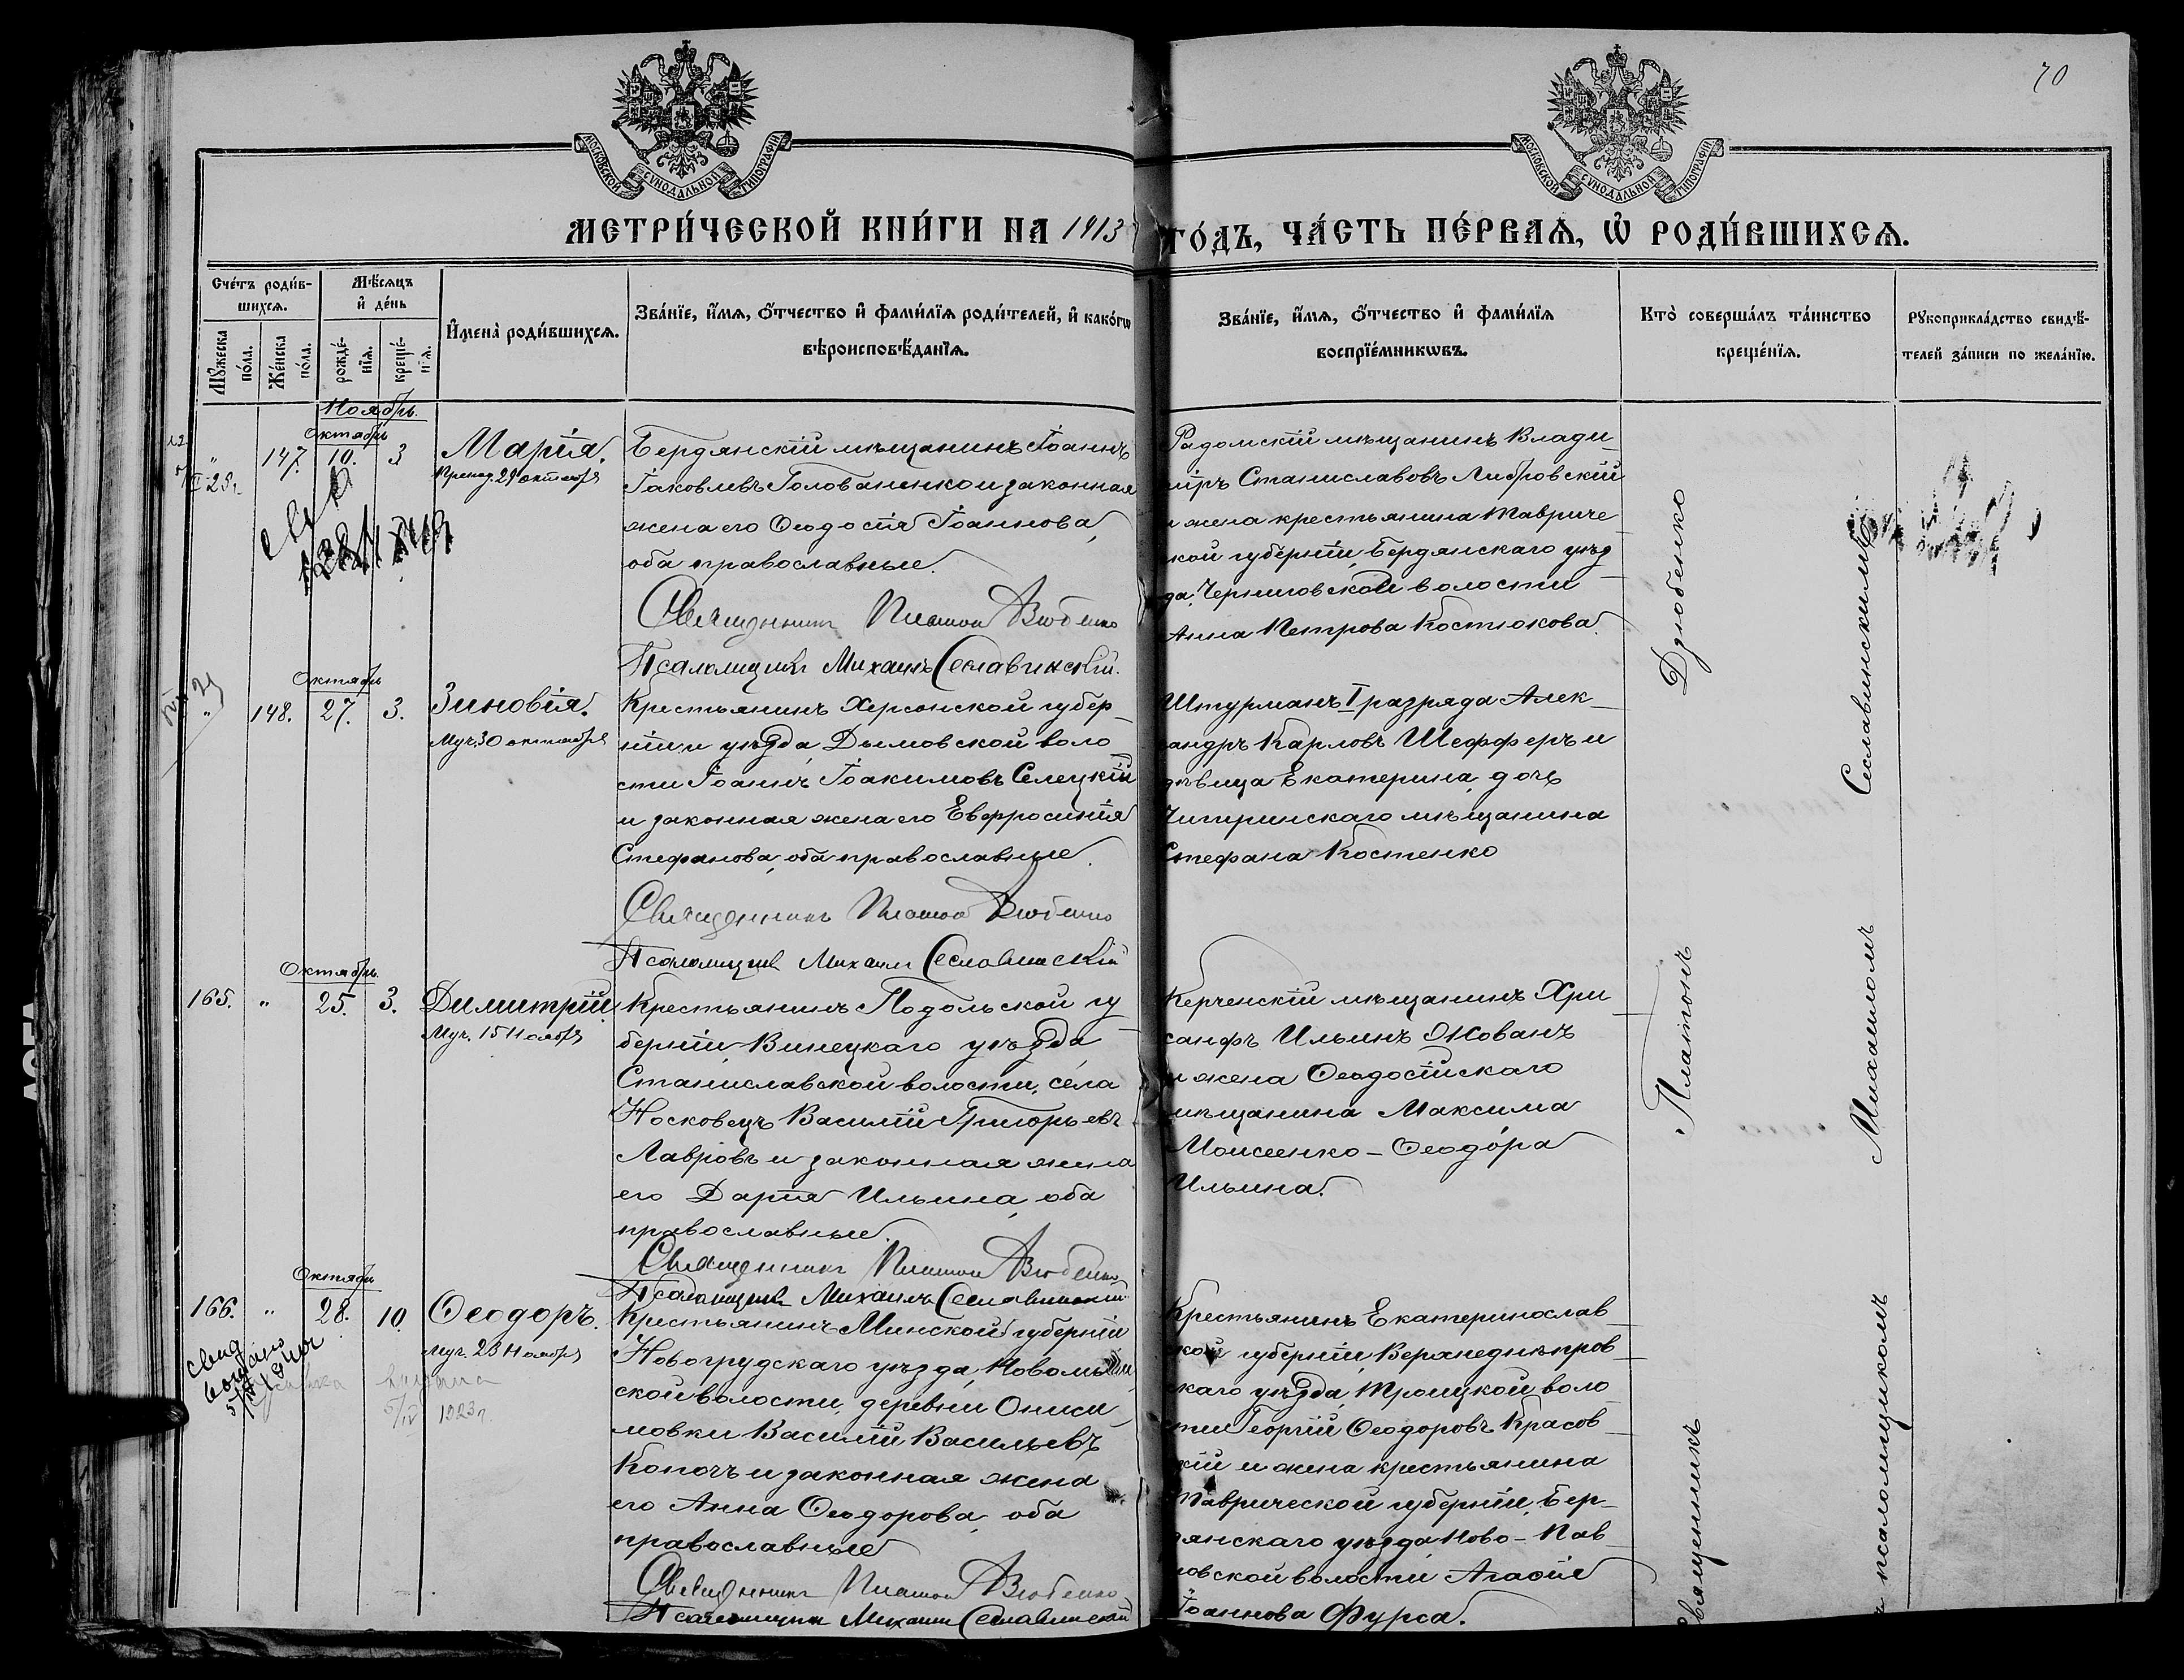 70
МОСКОВСКОЙ СѴНОДАЛЬНОЙ ТИПОГРАФІИ
МОСКОВСКОЙ СѴНОДАЛЬНОЙ ТИПОГРАФІИ
МЕТРИ́ЧЕСКОЙ КНИ́ГИ НА 1913 ГО́ДЪ, ЧА́СТЬ ПЕ́РВАѦ, Ѡ҆ РОДИ́ВШИХСѦ.
Сче́тъ роди́в-
шихсѧ.
Мꙋ́жеска по́ла.
Же́нска по́ла.
Мѣ́сѧцъ
и҆ де́нь
рожде́-
нїѧ.
креще́-
нїѧ.
И҆мена̀ роди́вшихсѧ.
Зва́нїе, и҆́мѧ, ѻ҆́тчество и҆ фами́лїѧ роди́телей, и҆ како́гѡ
вѣроисповѣ́данїѧ.
Зва́нїе, и҆́мѧ, ѻ҆́тчество и҆ фами́лїѧ
воспрїе́мникѡвъ.
Кто̀ соверша́лъ та́инство
креще́нїѧ.
Рꙋкоприкла́дство свидѣ́-
телей за́писи по жела́нїю.
Ноябрь.
Октябрь
" 147. 10. 3
Марія.
Препод. 29 октября
Бердянскій мѣщанинъ Іоаннъ
Іаковлевъ Голованенко и законная
жена его Ѳеодосія Іоаннова,
оба православные.
Священникъ Платонъ Дзюбенко
Псаломщикъ Михаилъ Сеславинскій.
Радомскій мѣщанинъ Влади-
міръ Станиславовъ Либровскій
и жена крестьянина Тавриче
ской губерніи, Бердянскаго уѣз-
да, Черниговской волости
Анна Петрова Костюкова.
Октябрь
" 148. 27. 3.
Зиновія.
Муч. 30 октября
Крестьянинъ Херсонской губер-
ніи и уѣзда, Дымовской воло
сти Іоаннъ Іоакимовъ Селецкій
и законная жена его Евфросинія
Стефанова, оба православные.
Священникъ Платонъ Дзюбенко
Псаломщикъ Михаилъ Сеславинскій
Штурманъ I разряда Алек-
сандръ Карловъ Шефферъ и
дѣвица Екатерина, дочь
Чигиринскаго мѣщанина
Стефана Костенко
Октябрь.
165. " 25. 3.
Димитрій.
Муч. 15 Ноября
Крестьянинъ Подольской гу-
берніи, Винецкаго уѣзда
Станиславской волости, села
Носковецъ Василій Григорьевъ
Лавровъ и законная жена
его Дарія Ильина, оба
православные.
Священникъ Платонъ Дзюбенко
Псаломщикъ Михаилъ Сеславинскій
Керченскій мѣщанинъ Хри-
санфъ Ильинъ Жованъ
и жена Ѳеодосійскаго
мѣщанина Максима
Моисеенко - Ѳеодо́ра
Ильина.
Октябрь
166. " 28. 10.
Ѳеодоръ.
муч. 23 Ноября
Крестьянинъ Минской губерніи
Новогрудскаго уѣзда,
ской волости, деревни Ониси-
мовки Василій Васильевъ
Копочъ и законная жена
его Анна Ѳеодорова, оба
православные
Священникъ Платонъ Дзюбенко
Псаломщикъ Михаилъ Сеславинскій
Крестьянинъ Екатеринослав-
ской губерніи, Верхнеднѣпров-
скаго уѣзда, Троицкой воло-
сти Георгій Ѳеодоровъ Красов-
скій и жена крестьянина
Таврической губерніи, Бер-
дянскаго уѣзда, Ново-Пав-
ловской волости Агафія
Іоаннова Фурса.
Священникъ Платонъ Дзюбенко
псаломщикомъ Михаиломъ Сеславинскимъ